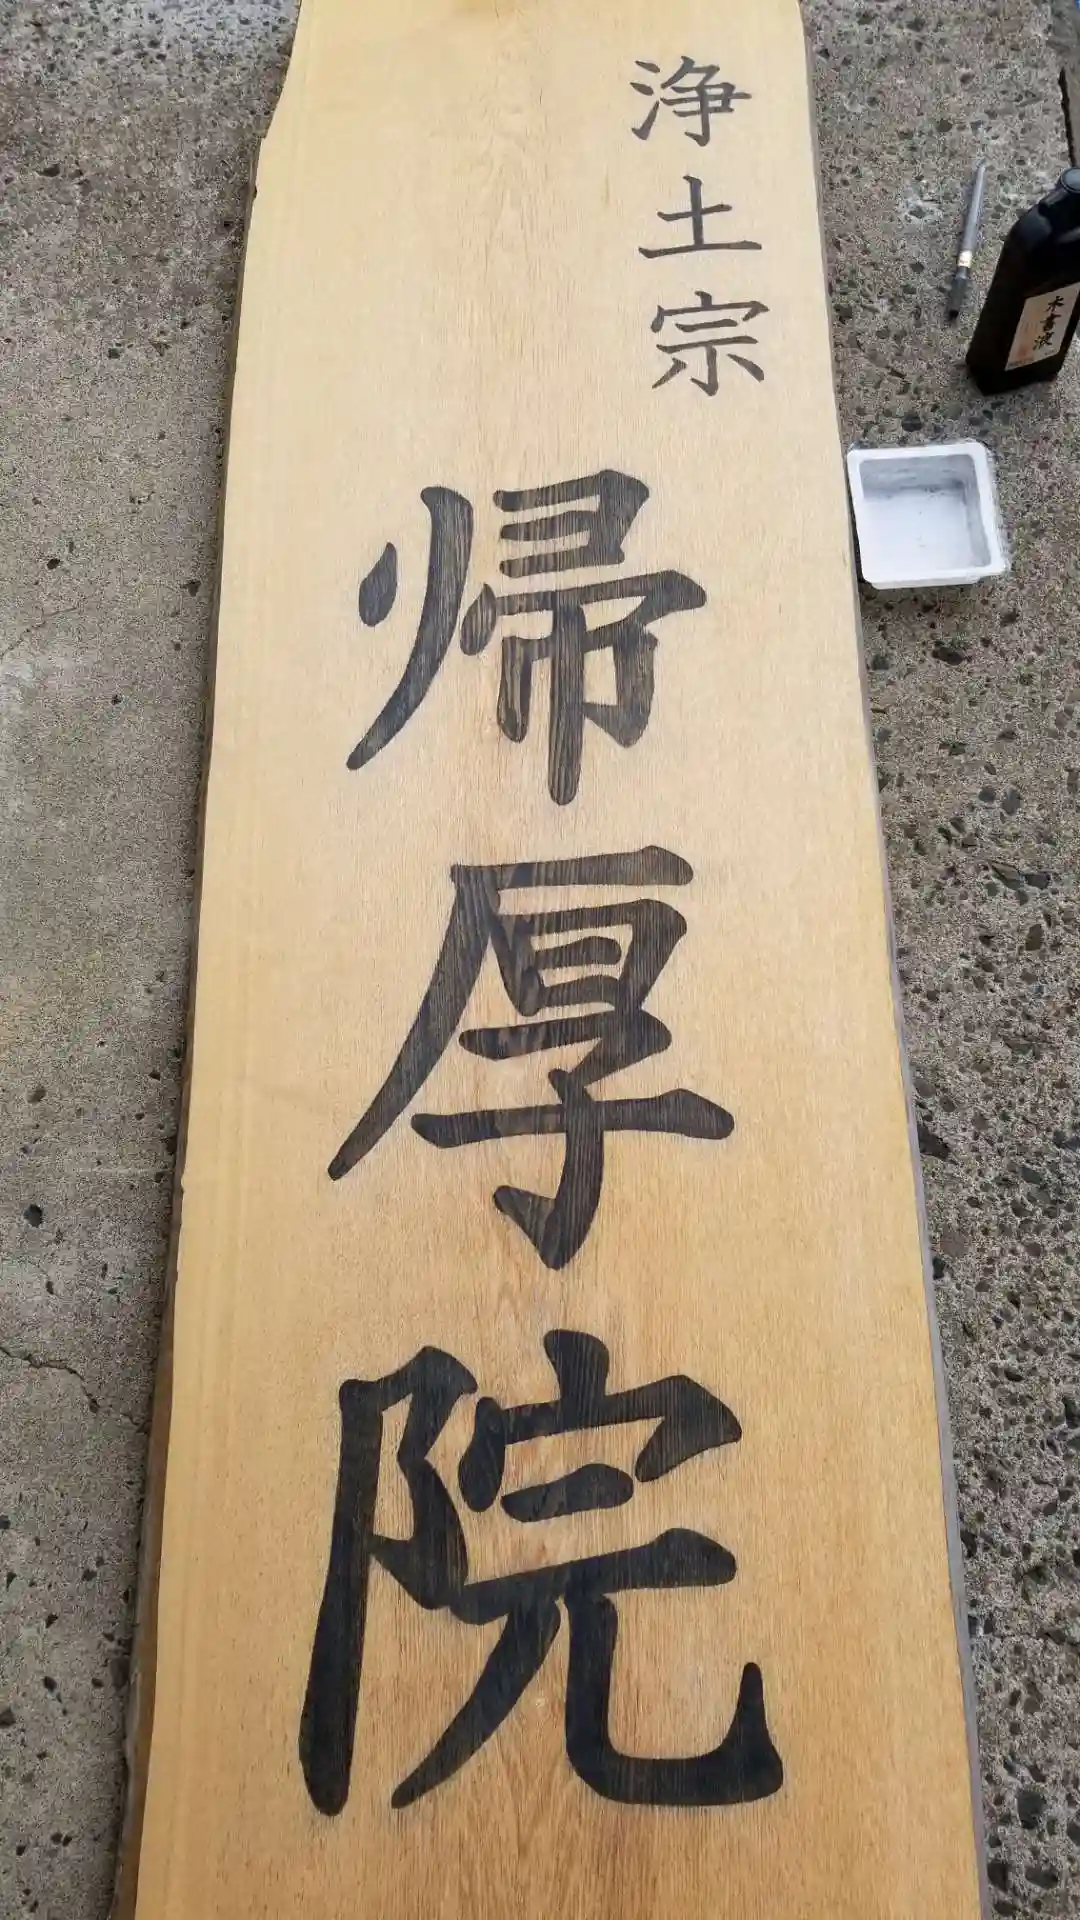 浄土宗
帰厚院
木書液